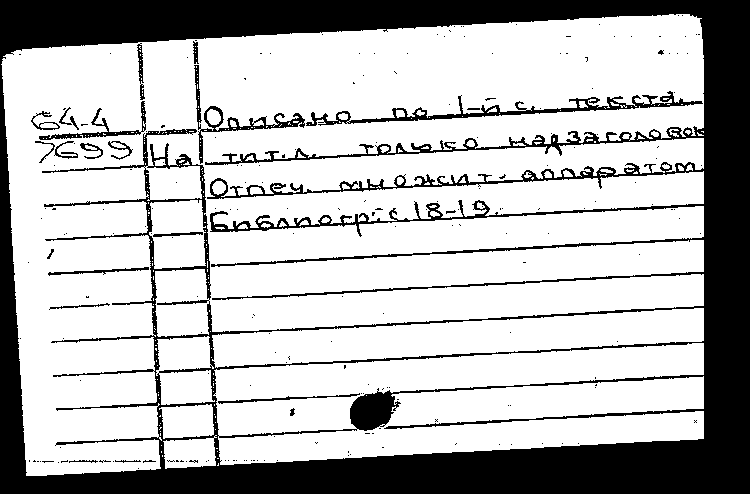 64-4 Описано по 1-й с. текста.
7699 На тит.л. только надзаголовок
Отпеч. множит. аппаратом.
Библиогр: с. 18-19.